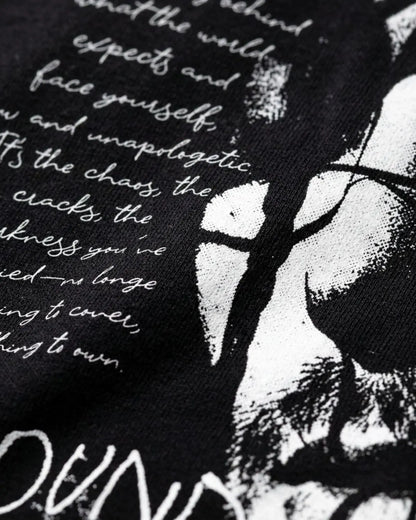 behind
what the world
expects and
face yourself,
and unapologetic.
It's the chaos, the
cracks, the
you've
no longe
to cover,
to own.
OUND